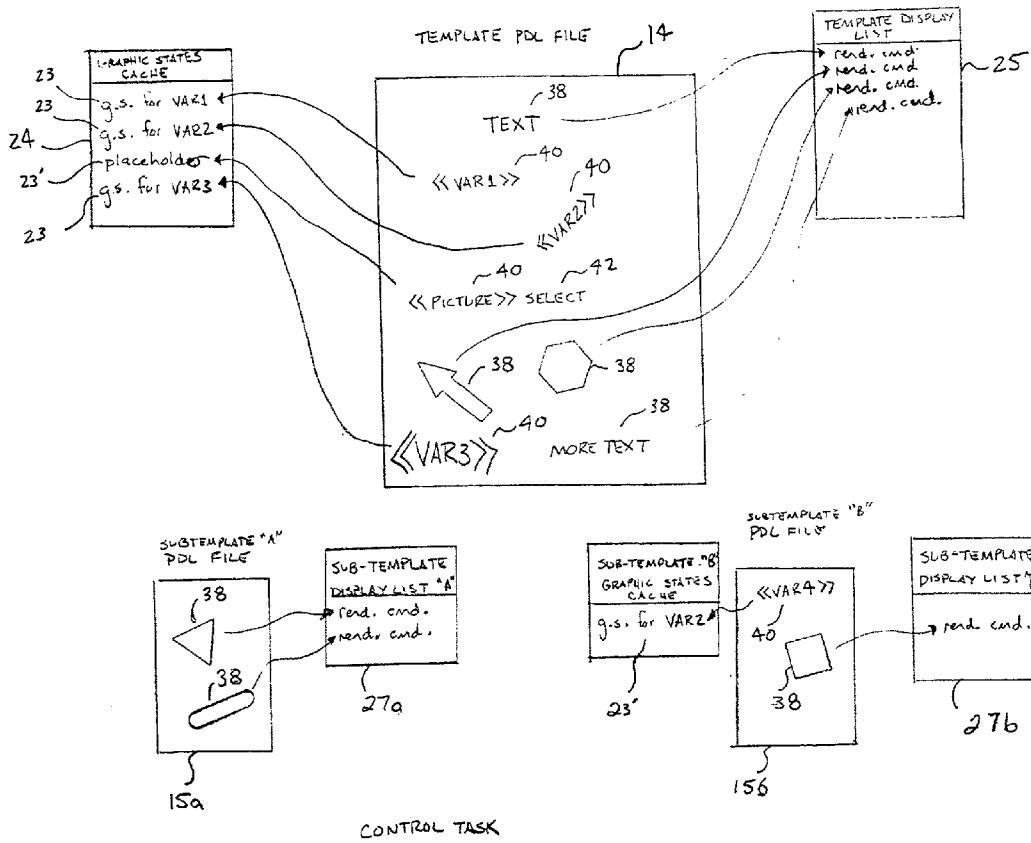 TEMPLATE PDL FILE
14
GRAPHIC STATES
CACHE
23
g.s. for VAR1
23
g.s. for VAR2
24
placeholder
23'
g.s. for VAR3
23
38
TEXT
40
<<VAR1>>
40
<<VAR2>>
40
42
<<PICTURE>> SELECT
38
38
38
40
<<VAR3>>
MORE TEXT
TEMPLATE DISPLAY
LIST
rend. cmd.
rend. cmd
rend. cmd.
rend. cmd.
25
SUBTEMPLATE "A"
PDL FILE
38
38
15a
SUB-TEMPLATE
DISPLAY LIST "A"
rend. cmd.
rend. cmd.
27a
SUB-TEMPLATE "B"
GRAPHIC STATES
CACHE
g.s. for VAR2
23"
SUBTEMPLATE "B"
PDL FILE
<<VAR4>>
40
38
15b
SUB-TEMPLATE
DISPLAY LIST
rend. cmd.
27b
CONTROL TASK